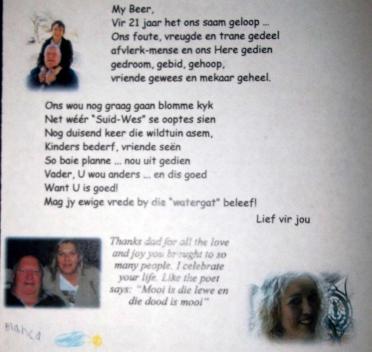 My Beer,
Vir 21 jaar het ons saam geloop ...
Ons foute, vreugde en trane gedeel
afvlerk-mense en ons Here gedien
gedroom, gebid, gehoop,
vriende gewees en mekaar geheel.
Ons wou nog graag gaan blomme kyk
Net wéér "Suid-Wes" se ooptes sien
Nog duisend keer die wildtuin asem,
Kinders bederf, vriende seën
So baie planne ... nou uit gedien
Vader, U wou anders ... en dis goed
Want U is goed!
Mag jy ewige vrede by die "watergat" beleef!
Lief vir jou
Thanks dad for all the love
and joy you brought to so
many people. I celebrate
your life. Like the poet
says: "Mooi is die lewe en
die dood is mooi"
Bianca